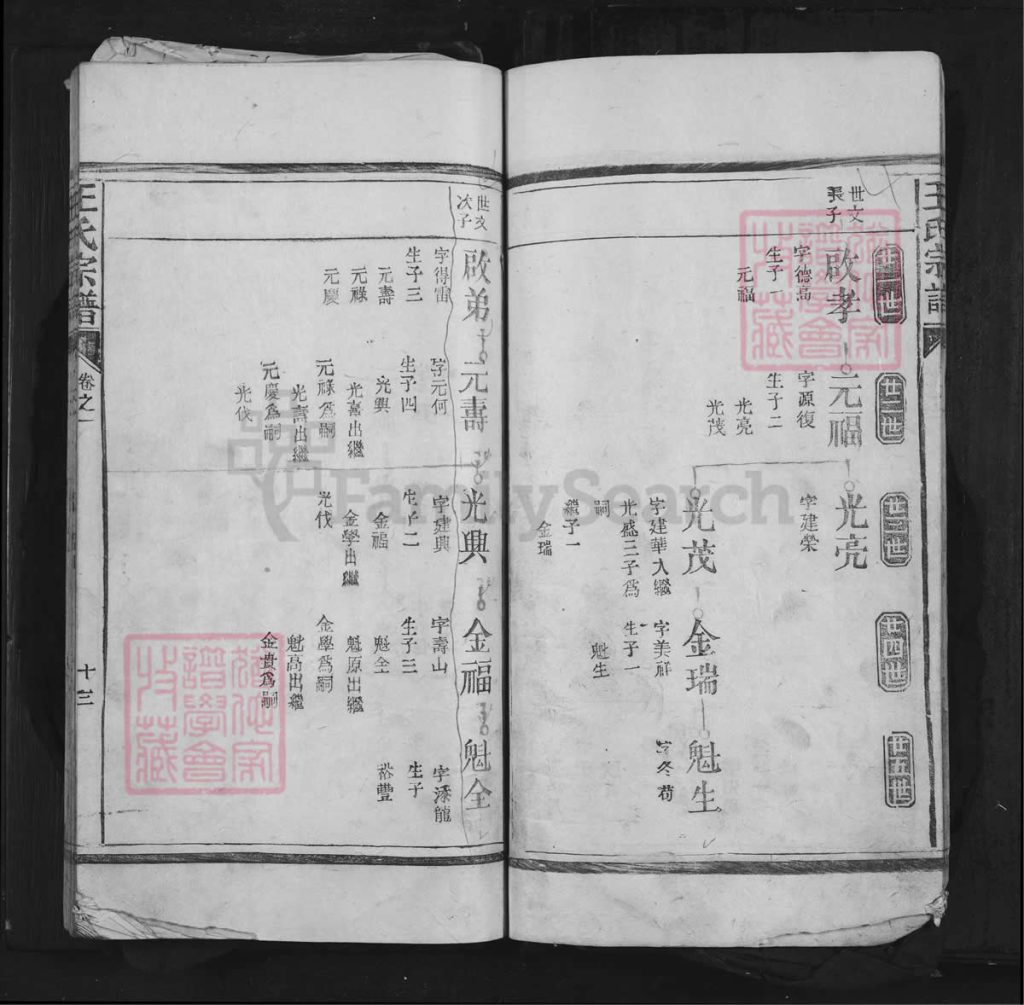 王氏宗譜
廿一世
廿二世
廿三世
廿四世
廿五世
世文
長子
啟孝
字德高
生子一
元福
元福
字源復
生子二
光亮
光茂
光亮
字建榮
光茂
字建華入繼
光盛三子爲
嗣
繼子一
金瑞
金瑞
字美祥
生子一
魁生
魁生
字冬荀
世文
次子
啟弟
字得雷
生子三
元壽
元祿
元慶
元壽
字元何
生子四
光興
光喜出繼
元祿爲嗣
光壽出繼
元慶爲嗣
光伐
光興
字建興
生子二
金福
金學出繼
光伐
金福
字壽山
生子三
魁全
魁原出繼
金學爲嗣
魁高出繼
金貴爲嗣
魁全
字添龍
生子
裕豐
王氏宗譜
卷之一
十三
FamilySearch